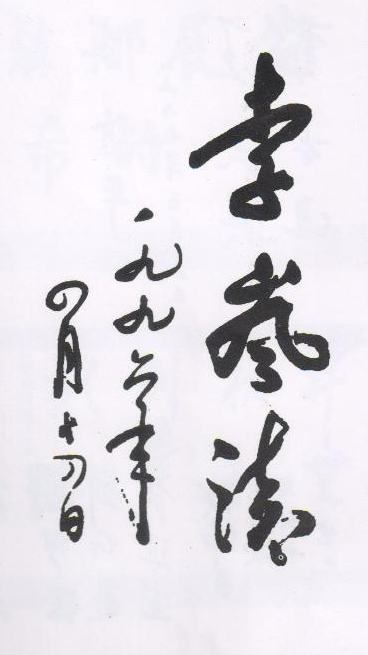 李岚清
一九九六年
四月十四日